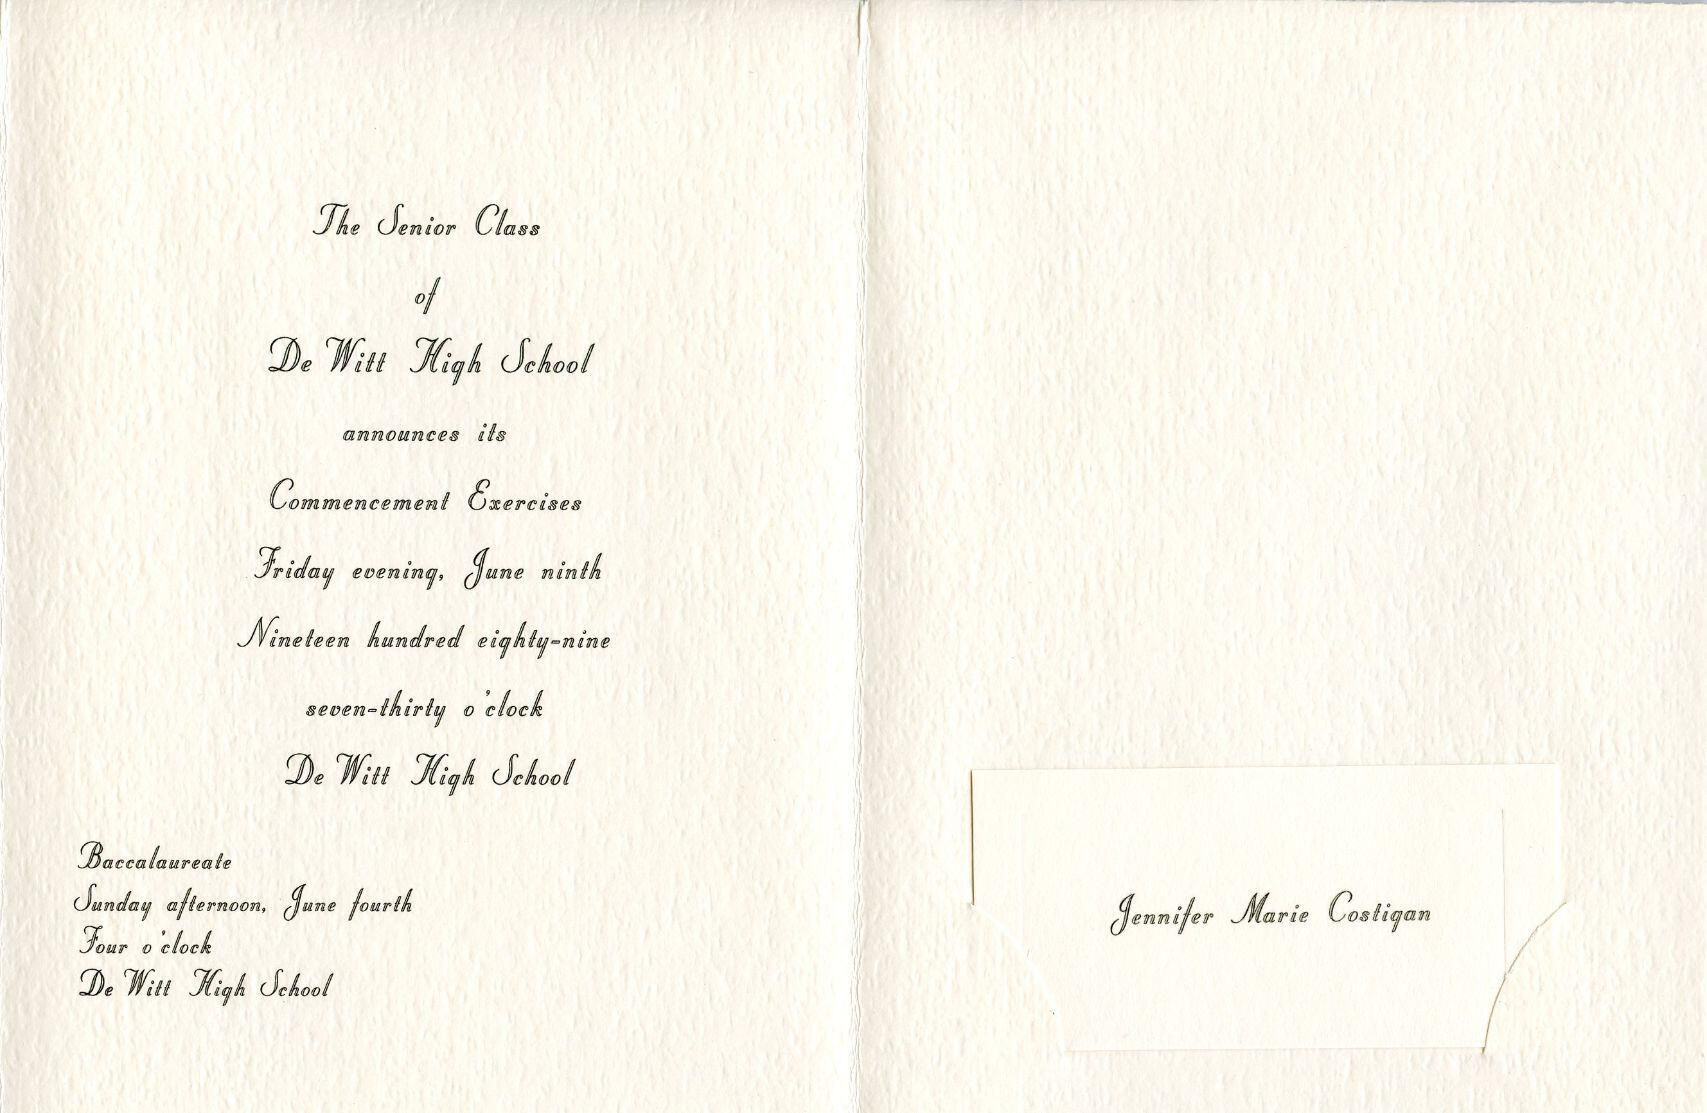 The Senior Class
of
De Witt High School
announces its
Commencement Exercises
Friday evening, June ninth
Nineteen hundred eighty-nine
seven-thirty o'clock
De Witt High School
Baccalaureate
Sunday afternoon, June fourth
Four o'clock
De Witt High School
Jennifer Marie Costigan